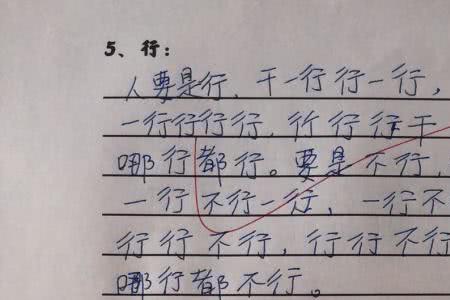 5、行：
人要是行，干一行行一行，
一行行行行，行行行干
哪行都行。要是不行，
一行不行一行，一行不
行行不行，行行不行
哪行都不行。